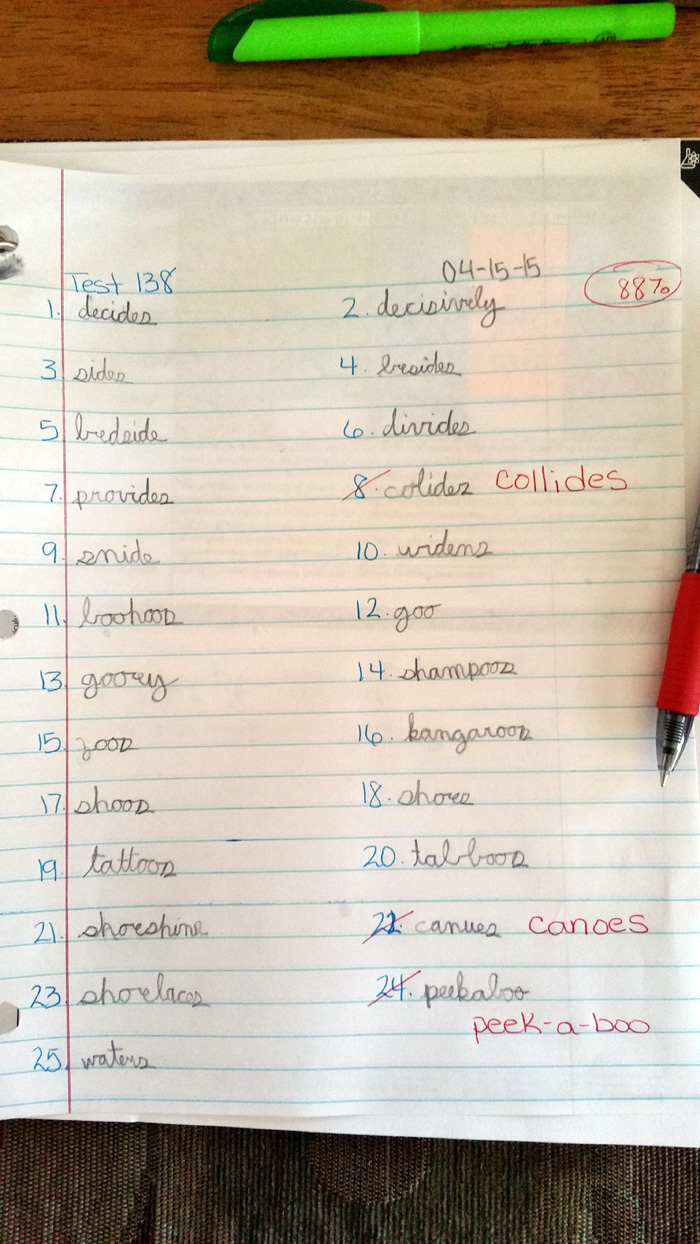 04-15-15
Test 138 88%
1. decides 2. decisively
3. sides 4. besides
5. bedside 6. divides
7. provides 8. colides collides
9. snide 10. widens
11. boohoos 12. goo
13. gooey 14. shampoos
15. zoos 16. kangaroos
17. shoos 18. shoes
19. tattoos 20. tabboos
21. shoeshine 22. canues canoes
23. shoelaces 24. peekaboo
peek-a-boo
25. waters